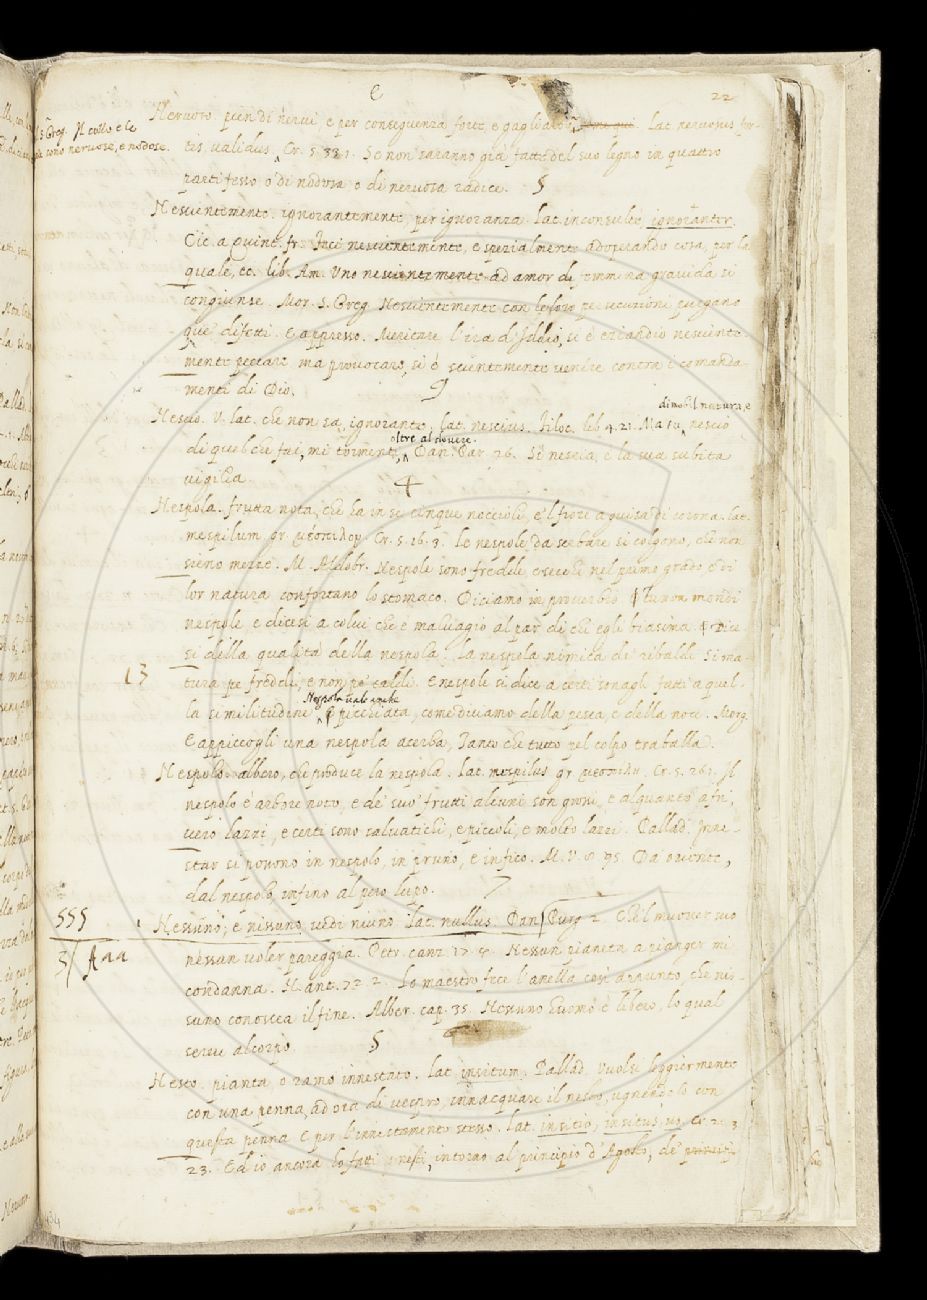 e
22
Nervoso. pien di nervi, e per conseguenza forte, e gagliardo. Lat. nervosus for-
S. Greg. Il collo e le
sono nervose, e nodose.
tis, validus. Cr. 5. 33. 1. Se non saranno già fatte del suo legno in quattro
parti fesso o di nodosa o di nervosa radice. §
Nescientemente. ignorantemente, per ignoranza. Lat. inconsulte, ignoranter.
Cic. a Quint. fr. Feci nescientemente, e spezialmente adoperando cosa, per la
quale, ec. lib. Am. Uno nescientemente ad amor di femmina gravida si
congiunse. Mor. S. Greg. Nescientemente con le loro persecuzioni purgano
que' difetti. E appresso. Meritare l'ira d'Iddio, si è eziandio nesciente-
mente peccare ma provocare, si è scientemente venire contra i comanda-
menti di Dio. 9
dimobil natura, e
Nescio. V. lat. che non sa, ignorante. Lat. nescius. Filoc. lib. 4. 21. Ma tu, nescio
oltre al dovere.
di quel che fai, mi tormenti, Dan. Par. 26. Si nescia è la sua subita
vigilia. 4
Nespola. frutta nota, che ha in se cinque noccioli, e 'l fiore a guisa di corona. lat.
mespilum gr. μέσπιλον. Cr. 5. 16. 3. Le nespole da serbare si colgono, che non
sieno mezze. M. Aldobr. Nespole sono fredde, e secche nel primo grado, e di
lor natura confortano lo stomaco. Diciamo in proverbio tu non mondi
nespole e dicesi a colui che è malvagio al par di chi egli biasima. Dice-
si della qualità della nespola. La nespola nimica de' ribaldi Si ma-
13
tura pe' freddi, e non pe' caldi. E nespole si dice a certi sonagli fatti a quel-
Nespola vale anche
la similitudine picchiata, come diciamo della pesca, e della noce. Morg.
E appiccogli una nespola acerba, Tanto che tutto pel colpo traballa.
Nespolo. albero, che produce la nespola. Lat. mespilus gr. μεσπίλη. Cr. 5. 26. 1. Il
nespolo è arbore noto, e de' suo' frutti alcuni son grossi, e alquanto afri,
vero lazzi, e certi sono salvatichi, e piccoli, e molto lazzi. Pallad. Inne-
star si possono in nespolo, in pruno, e in fico. M. V. 8. 95. Da Ovente,
dal nespolo infino al pero lupo. 7
555
Nessuno, e nissuno, vedi niuno. lat. nullus. Dan. Purg. 2. Che 'l muover suo
5/ Aaa
nessun voler pareggia. Petr. canz. 17. 4. Nessun pianeta a pianger mi
condanna. N. ant. 72. 2. Lo maestro fece l'anella così appunto, che nis-
suno conoscea il fine. Alber. cap. 35. Nessuno huomo è libero, lo qual
serve al corpo. §
Nesto. pianta o ramo innestato. Lat. insitum. Pallad. Vuolsi leggiermente
con una penna, ad ora di vespro, innacquare il nesto, ugnendolo con
questa penna E per l'innestamento stesso. Lat. insitio, insitus, us. Cr. 2. 3
23. Ed io ancora ho fatti nesti, intorno al principio d'Agosto, de'